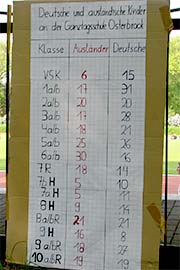 Deutsche und ausländische Kinder
an der Ganztagsschule Osterbrock
Klasse Ausländer Deutsche
VSK 6 15
1a/b 17 31
2a/b 20 20
3a/b 17 28
4a/b 18 21
5a/b 25 25
6a/b 30 16
7R 18 14
7b H 5 10
7a H 5 11
8 H 9 11
8a/b R 21 21
9 H 16 8
9 a/b R 18 23
10a/b R 19 19